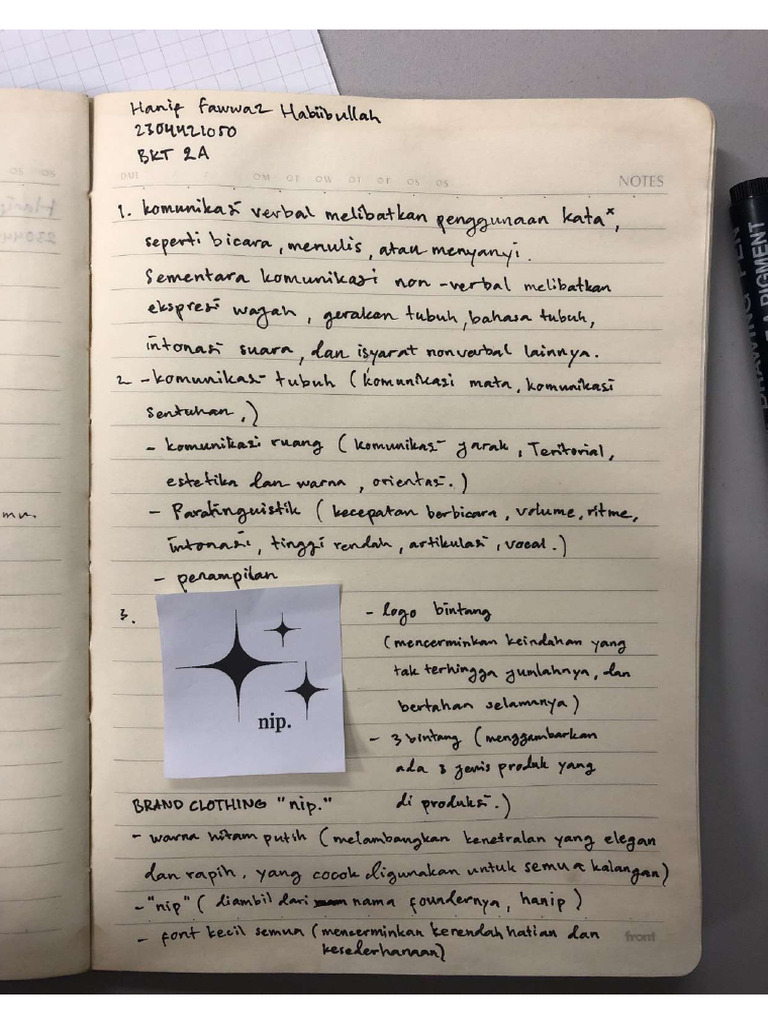 Hanif Fawwaz Habiibullah
2304421050
BKT 2A
NOTES
1. komunikasi verbal melibatkan penggunaan kata×,
seperti bicara, menulis, atau menyanyi.
Sementara komunikasi non-verbal melibatkan
ekspresi wajah, gerakan tubuh, bahasa tubuh,
intonasi suara, dan isyarat nonverbal lainnya.
2 - komunikasi tubuh (komunikasi mata, komunikasi
sentuhan,)
- komunikasi ruang (komunikasi jarak, Teritorial,
estetika dan warna, orientasi.)
- Paralinguistik (kecepatan berbicara, volume, ritme,
intonasi, tinggi rendah, artikulasi, vocal.)
- penampilan
3.
nip.
- logo bintang
(mencerminkan keindahan yang
tak terhingga jumlahnya, dan
bertahan selamanya)
- 3 bintang (menggambarkan
ada 3 jenis produk yang
di produksi.)
BRAND CLOTHING "nip."
- warna hitam putih (melambangkan kenetralan yang elegan
dan rapih, yang cocok digunakan untuk semua kalangan)
- "nip" (diambil dari nama foundernya, hanip)
- font kecil semua (mencerminkan kerendah hatian dan
kesederhanaan)
front
DRAWING PEN
PIGMENT